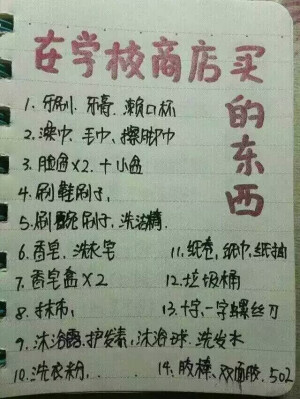 在学校商店买的东西
1. 牙刷、牙膏、漱口杯
2. 澡巾、毛巾、擦脚巾
3. 脸盆×2. 十小盆
4. 刷鞋刷子,
5. 刷碗刷子, 洗洁精
6. 香皂、洗衣皂
7. 香皂盒×2
8. 抹布,
9. 沐浴露、护发素, 沐浴球、洗发水
10. 洗衣粉、
11. 纸卷, 纸巾, 纸抽
12. 垃圾桶
13. 十字, 一字螺丝刀
14. 胶棒、双面胶. 502